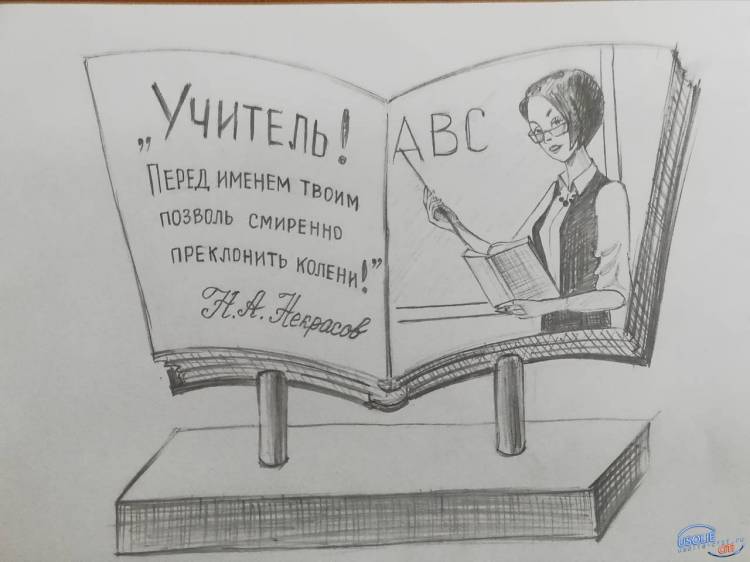 „Учитель!
Перед именем твоим
позволь смиренно
преклонить колени!”
Н.А. Некрасов
АВС
USOLIE